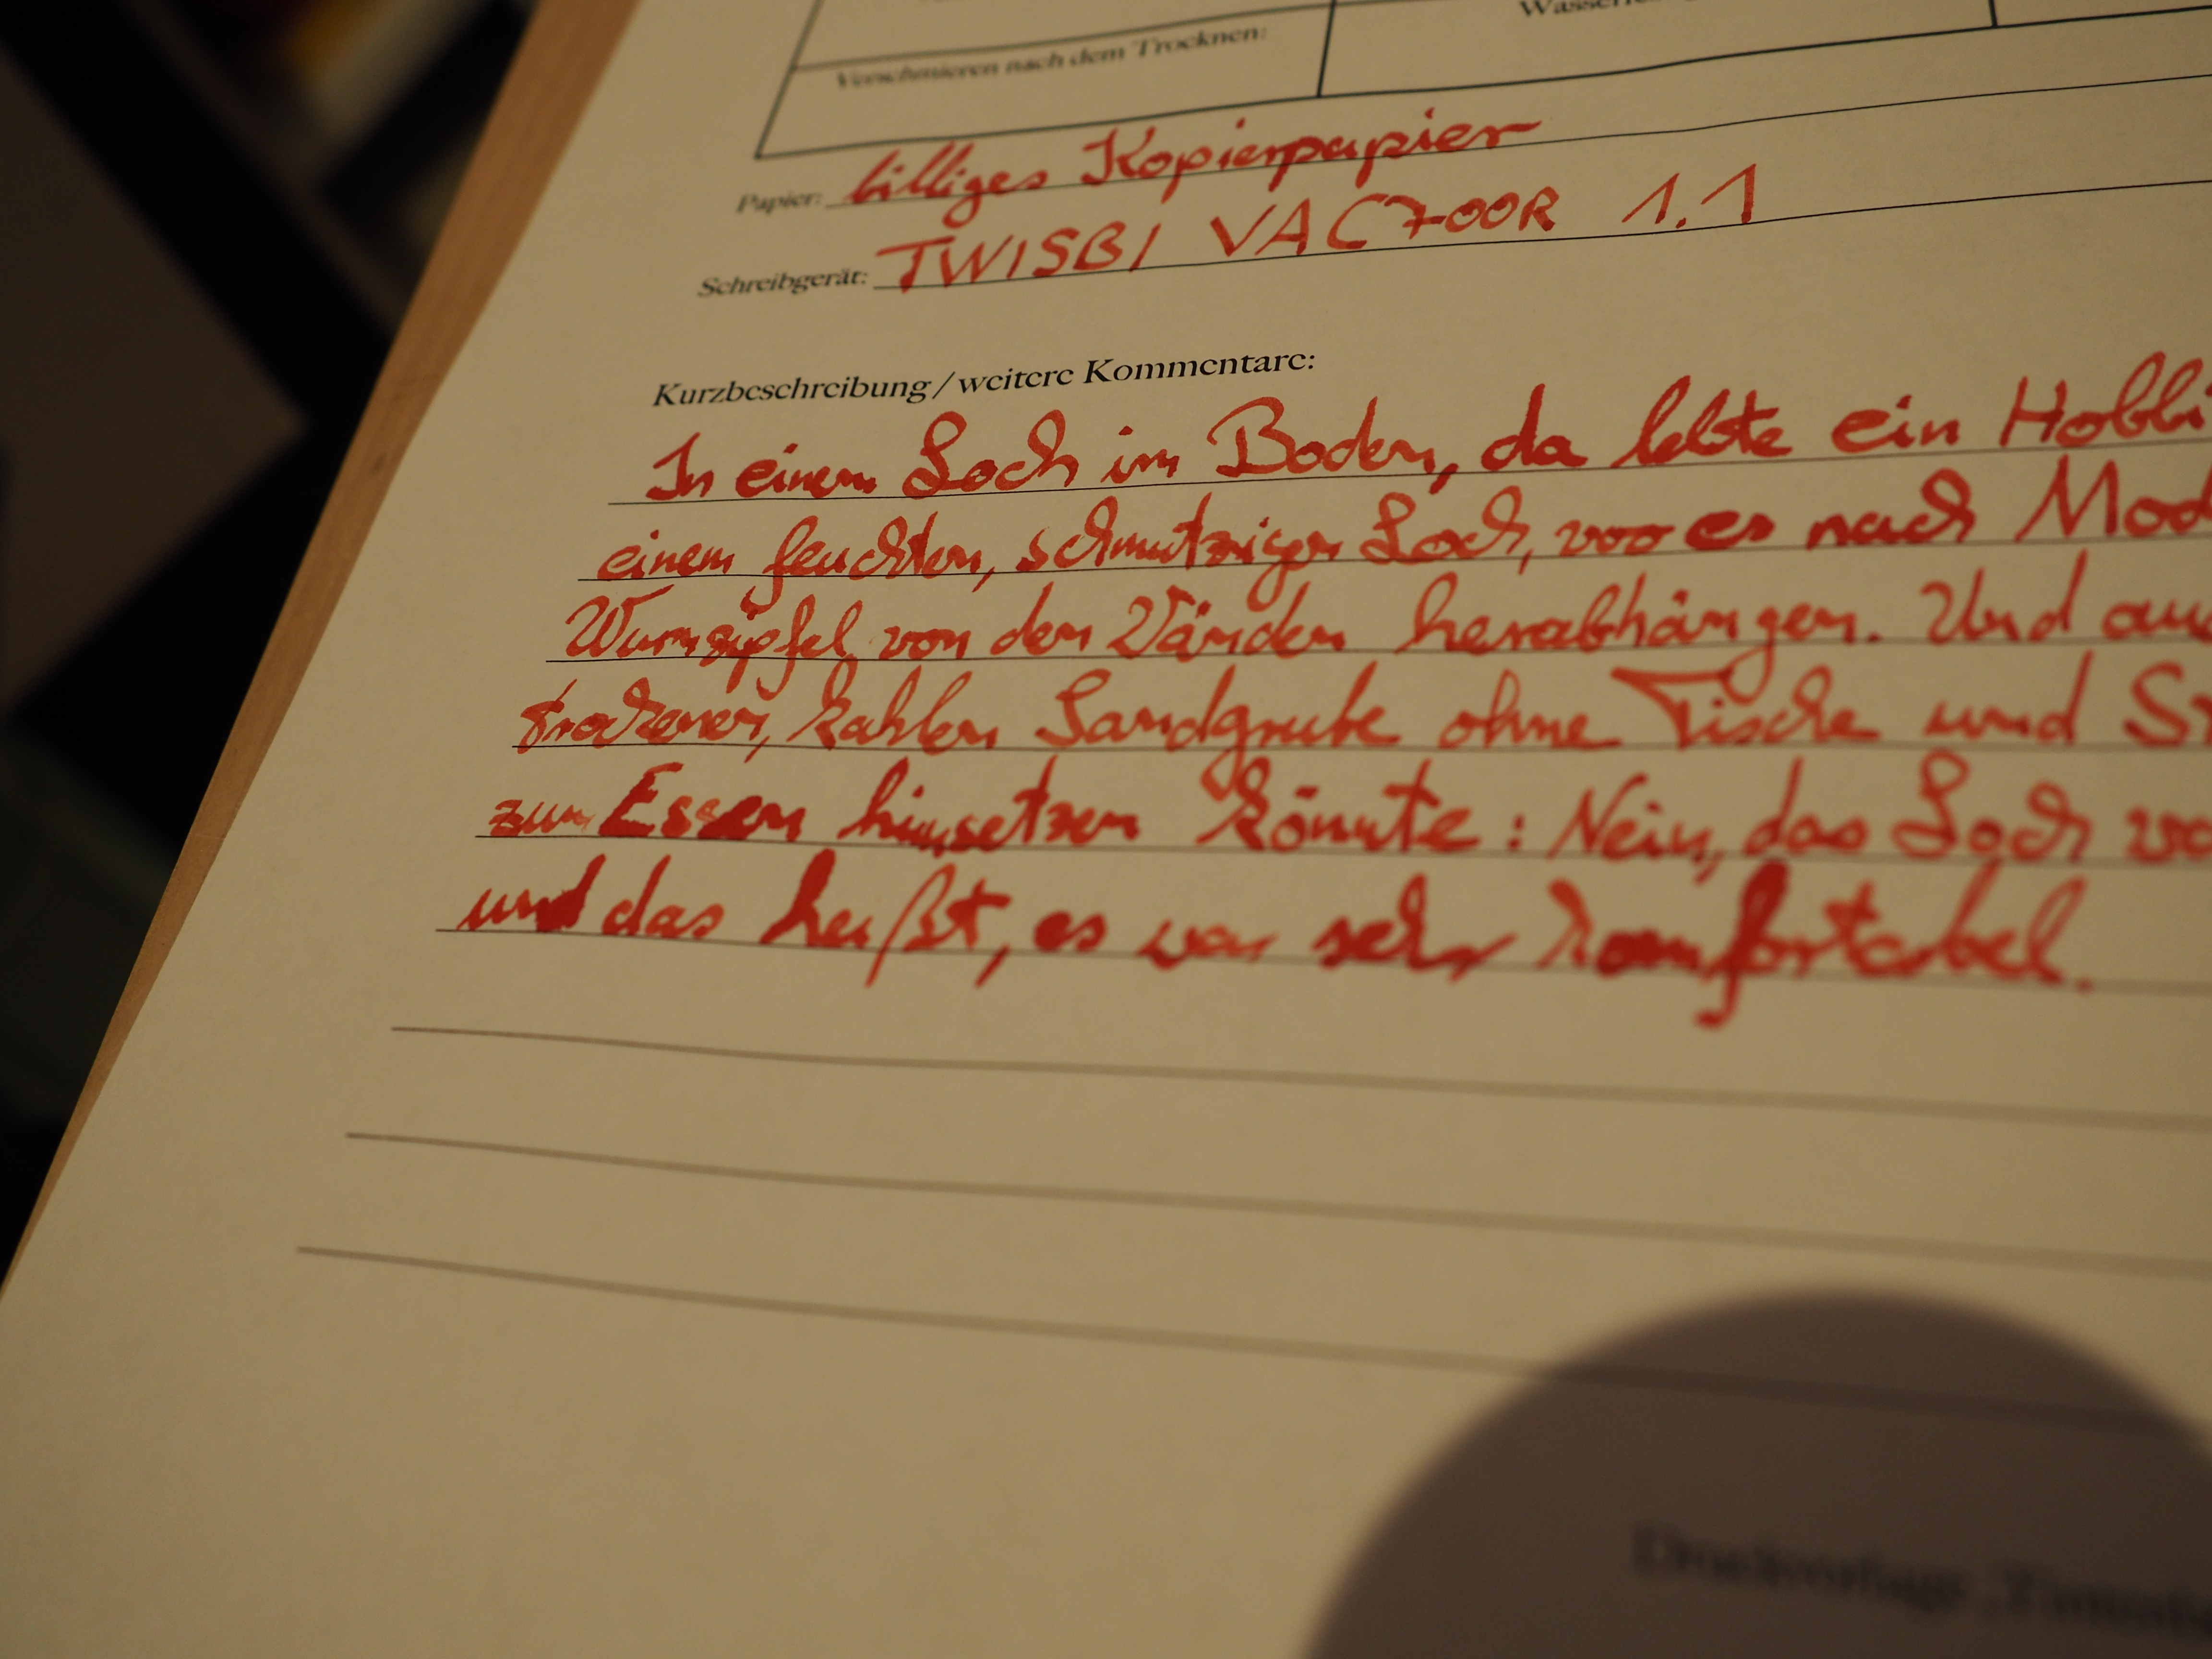 Verschmieren nach dem Trocknen:
Papier: billiges Kopierpapier
Schreibgerät: TWISBI VAC700R 1.1
Kurzbeschreibung / weitere Kommentare:
In einem Loch im Boden, da lebte ein Hobbi
einem feuchten, schmutzigen Loch, wo es nach Mod
Wurmzipfel von den Wänden herabhängen. Und auc
trockenen, kahlen Sandgrube ohne Tische und St
zum Essen hinsetzen könnte: Nein, das Loch wa
und das heißt, es war sehr komfortabel.
Druckvorlage